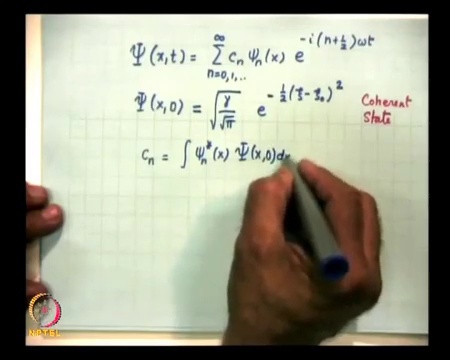 Ψ(x,t) = Σ_{n=0,1,..}^{∞} c_n ψ_n(x) e^{-i(n+½)ωt}
Ψ(x,0) = √(γ/√π) e^{-½(ξ-ξ₀)²} Coherent State
c_n = ∫ ψ_n*(x) Ψ(x,0)dx
NPTEL